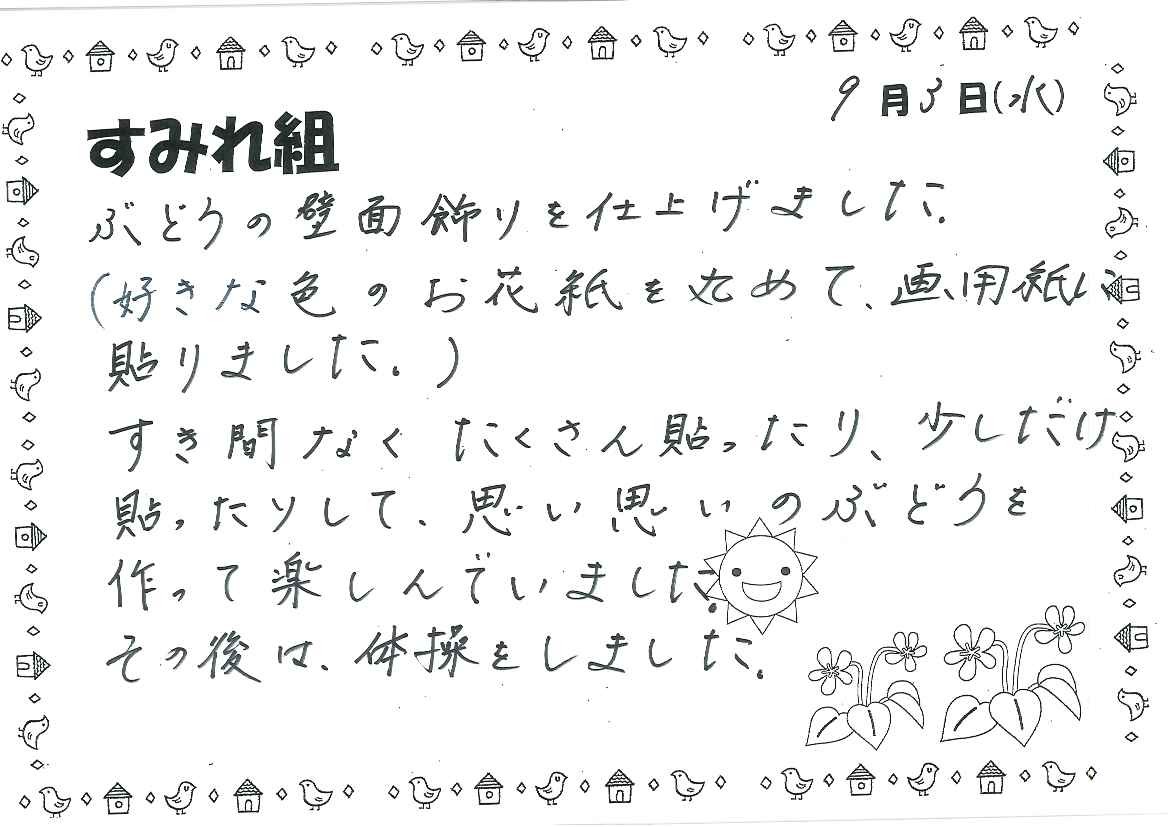 9月3日(水)
すみれ組
ぶどうの壁面飾りを仕上げました。
(好きな色のお花紙を丸めて、画用紙に
貼りました。)
すき間なくたくさん貼ったり、少しだけ
貼ったりして、思い思いのぶどうを
作って楽しんでいました。
その後は、体操をしました。